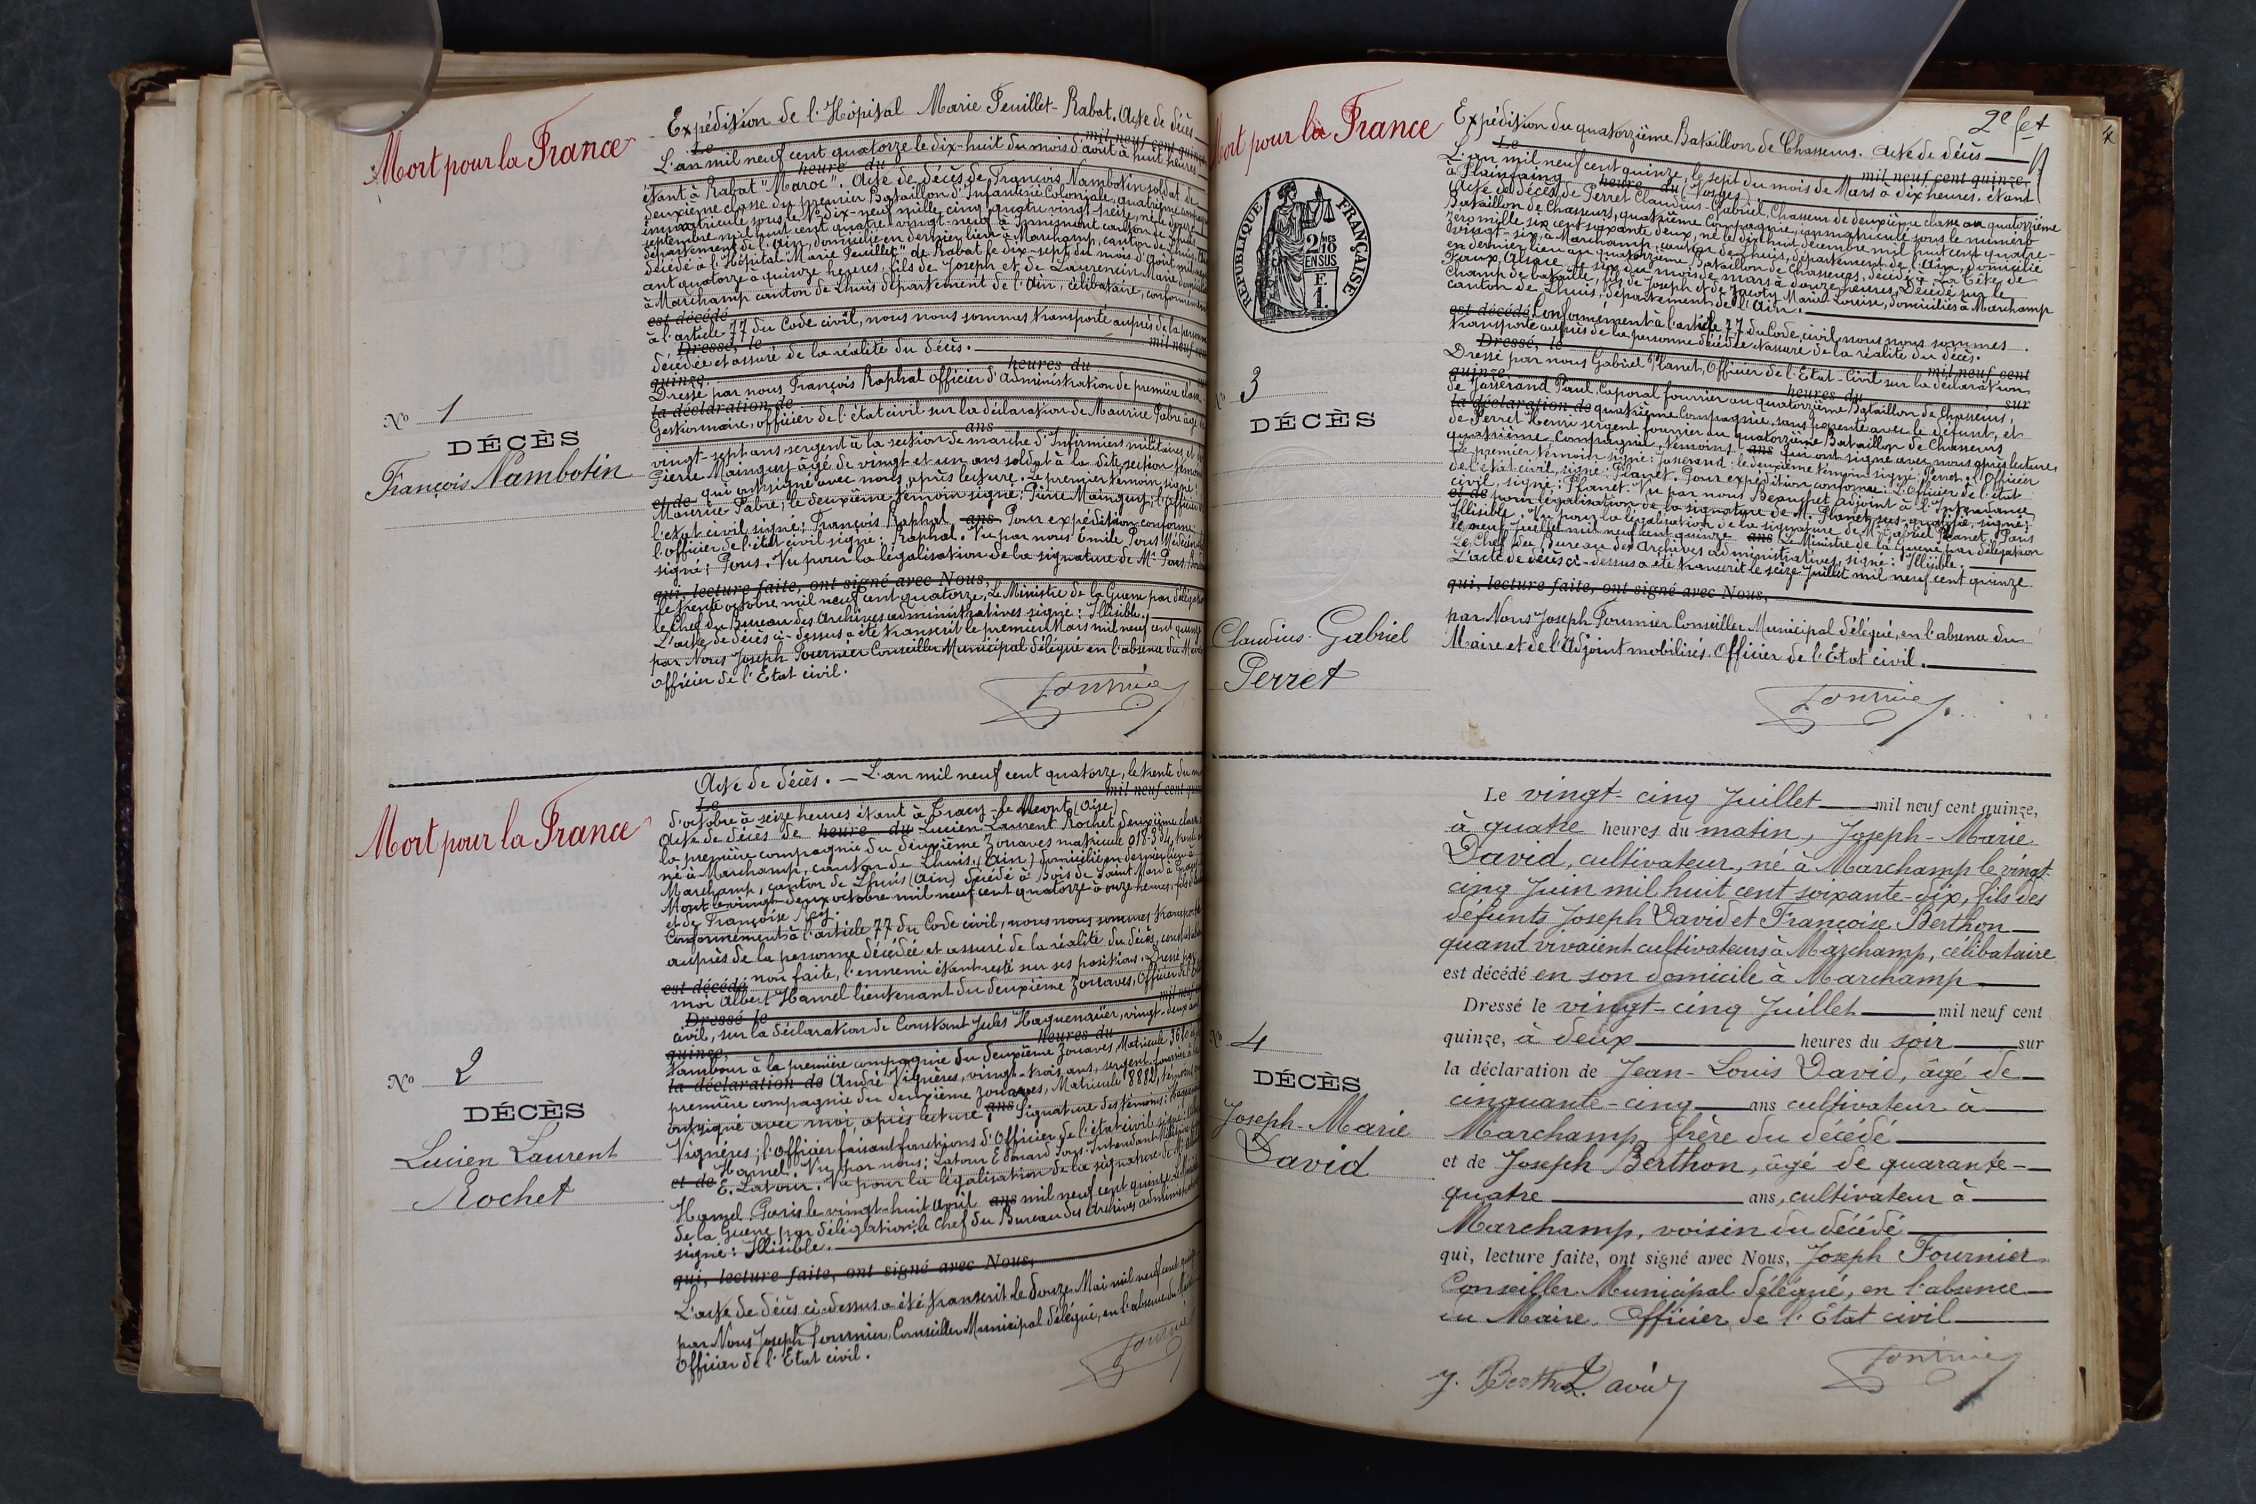 Mort pour la France
Nº 1
DÉCÈS
François Nambotin
Expédition de l'Hôpital Marie Feuillet - Rabat. Acte de décès
Le mil neuf cent quinze
L'an mil neuf cent quatorze le dix-huit du mois d'août à huit heures
heure du
étant à Rabat "Maroc". Acte de décès de François Nambotin soldat de
deuxième classe du premier Bataillon d'Infanterie Coloniale, quatrième
immatriculé sous le Nº dix-neuf mille cinq quatre vingt seize, né le onze
septembre mil huit cent quatre-vingt-neuf à canton de Lhuis
département de l'Ain, domicilié en dernier lieu à Marchamp, canton de Lhuis,
décédé à l'Hôpital "Marie Feuillet" de Rabat le dix-sept du mois d'août mil neuf
cent quatorze à quinze heures, fils de Joseph et de Laurencin Marie
à Marchamp canton de Lhuis département de l'Ain, célibataire, conformément
est décédé
à l'article 77 du Code civil, nous nous sommes transporté auprès de la personne
Dressé, le mil neuf cent
décédée et assuré de la réalité du décès.
quinze, heures du
Dressé par nous François Raphal officier d'administration de première classe
la déclaration de
Gestionnaire, officier de l'état civil sur la déclaration de Maurice Fabre âgé de
ans
vingt-sept ans sergent à la section de marche d'Infirmiers militaires et de
Pierre Mainguy âgé de vingt et un ans soldat à la dite section témoins
qui ont signé avec nous après lecture. Le premier témoin signé:
et de Maurice Fabre; le deuxième témoin signé: Pierre Mainguy; l'officier de
l'état civil signé: François Raphal. ans Pour expédition conforme
l'officier de l'état civil signé: Raphal. Vu par nous Émile Pons Médecin
signé: Pons. Vu pour la légalisation de la signature de Mr Pons,
qui, lecture faite, ont signé avec Nous,
le trente octobre mil neuf cent quatorze, Le Ministre de la Guerre par délégation
le Chef du Bureau des Archives administratives signé: Illisible.
L'acte de décès ci-dessus a été transcrit le premier Mars mil neuf cent quinze
par Nous Joseph Fournier Conseiller Municipal délégué en l'absence du Maire
Officier de l'État civil.
Fournier
Mort pour la France
Nº 2
DÉCÈS
Lucien Laurent
Rochet
Acte de décès. — L'an mil neuf cent quatorze, le trente du mois
Le mil neuf cent quinze
d'octobre à seize heures étant à Tracy-le-Mont (Oise)
Acte de décès de heure du Lucien Laurent Rochet deuxième classe
la première compagnie du deuxième Zouaves matricule 018.334,
né à Marchamp, canton de Lhuis (Ain) domicilié en dernier lieu à
Marchamp, canton de Lhuis (Ain) décédé à Bois de Saint Mard à Tracy-le-
Mont le vingt-deux octobre mil neuf cent quatorze à onze heures, fils de
et de Françoise Rey.
Conformément à l'article 77 du Code civil, nous nous sommes transporté
auprès de la personne décédée et assuré de la réalité du décès, constatation
est décédé non faite, l'ennemi étant resté sur ses positions. Dressé par
moi Albert Hamel lieutenant du deuxième Zouaves, Officier de l'État
Dressé le mil neuf cent
civil, sur la déclaration de Constant Jules Haguenaüer, vingt-deux ans
quinze, heures du
tambour à la première compagnie du deuxième Zouaves Matricule
la déclaration de André Vignères, vingt-trois ans, sergent-fourrier à la
première compagnie du deuxième Zouaves, Matricule 8882, témoins qui
ont signé avec moi, après lecture, ans Signature des témoins:
Vignères; l'officier faisant fonctions d'Officier de l'état civil signé:
Hamel. Vu par nous: Latour Edouard Sous-Intendant Militaire
et de E. Latour. Vu pour la légalisation de la signature de M.
Hamel. Paris le vingt-huit avril ans mil neuf cent quinze. Le Ministre
de la Guerre par délégation: le Chef du Bureau des Archives administratives
signé: Illisible.
qui, lecture faite, ont signé avec Nous,
L'acte de décès ci-dessus a été transcrit le douze Mai mil neuf cent quinze
par Nous Joseph Fournier, Conseiller Municipal délégué, en l'absence du Maire
Officier de l'État civil.
Fournier
2e fet
Mort pour la France
RÉPUBLIQUE FRANÇAISE
2/10 EN SUS
F.
1.
Nº 3
DÉCÈS
Claudius Gabriel
Perret
Expédition du quatorzième Bataillon de Chasseurs. Acte de décès
Le mil neuf cent quinze,
L'an mil neuf cent quinze, le sept du mois de Mars à dix heures. étant
à Plainfaing heure du (Vosges)
Acte de décès de Perret Claudius-Gabriel, Chasseur de deuxième classe au quatorzième
Bataillon de Chasseurs, quatrième Compagnie, immatriculé sous le numéro
zéro mille six cent soixante deux, né le dix huit décembre mil huit cent quatre-
vingt-six, à Marchamp, canton de Lhuis, département de l'Ain, domicilié
en dernier lieu au quatorzième Bataillon de Chasseurs, décédé à La Tête de
Faux, Alsace le six du mois de mars à douze heures, Décédé sur le
Champ de bataille, fils de Joseph et de Jacoty Marie Louise, domiciliés à Marchamp
canton de Lhuis, département de l'Ain.
est décédé Conformément à l'article 77 du Code civil, nous nous sommes
transporté auprès de la personne décédée et assuré de la réalité du décès.
Dressé, le mil neuf cent
Dressé par nous Gabriel Planet, Officier de l'État-Civil sur la déclaration
quinze, heures du sur
de Josserand Paul Caporal fourrier au quatorzième Bataillon de Chasseurs,
la déclaration de quatrième Compagnie, sans parenté avec le défunt, et
de Perret Henri sergent fourrier au quatorzième Bataillon de Chasseurs
quatrième Compagnie, témoins ans qui ont signé avec nous après lecture,
Le premier témoin signé: Josserand: le deuxième témoin signé: Perret. l'Officier
de l'état civil, signé: Planet. Pour expédition conforme: L'Officier de l'état
civil, signé: Planet. Vu par nous Beauchet adjoint à l'Intendance
et de pour légalisation de la signature de M. Planet, sus-qualifié, signé:
Illisible. Vu pour la légalisation de la signature de M. Gabriel Planet, Paris
le neuf Juillet mil neuf cent quinze ans Le Ministre de la Guerre par délégation
Le Chef du Bureau des Archives administratives, signé: Illisible.
L'acte de décès ci-dessus a été transcrit le seize Juillet mil neuf cent quinze
qui, lecture faite, ont signé avec Nous,
par Nous Joseph Fournier Conseiller Municipal délégué, en l'absence du
Maire et de l'Adjoint mobilisés. Officier de l'État civil.
Fournier
Nº 4
DÉCÈS
Joseph-Marie
David
Le vingt-cinq Juillet mil neuf cent quinze,
à quatre heures du matin, Joseph-Marie
David, cultivateur, né à Marchamp le vingt-
cinq Juin mil huit cent soixante-dix, fils des
défunts Joseph David et Françoise Berthon
quand vivaient cultivateurs à Marchamp, célibataire
est décédé en son domicile à Marchamp
Dressé le vingt-cinq Juillet mil neuf cent
quinze, à deux heures du soir sur
la déclaration de Jean-Louis David, âgé de
cinquante-cinq ans cultivateur à
Marchamp frère du décédé
et de Joseph Berthon, âgé de quarante-
quatre ans, cultivateur à
Marchamp, voisin du décédé
qui, lecture faite, ont signé avec Nous, Joseph Fournier
Conseiller Municipal délégué, en l'absence
du Maire. Officier de l'État civil
J. Berthon David Fournier